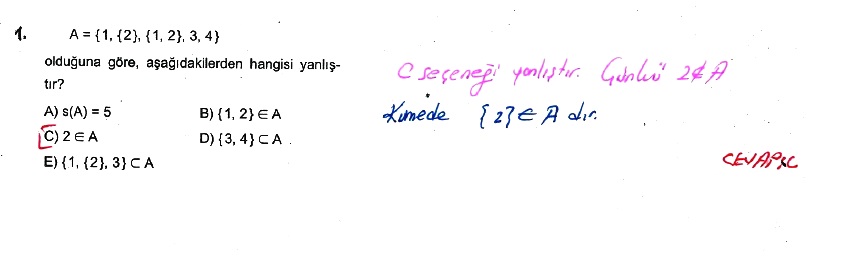 1. A = {1, {2}, {1, 2}, 3, 4}
olduğuna göre, aşağıdakilerden hangisi yanlış-
tır?
A) s(A) = 5 B) {1, 2} ∈ A
C) 2 ∈ A D) {3, 4} ⊂ A
E) {1, {2}, 3} ⊂ A
C seçeneği yanlıştır. Çünkü 2 ∉ A
Kümede {2} ∈ A dır.
CEVAP: C